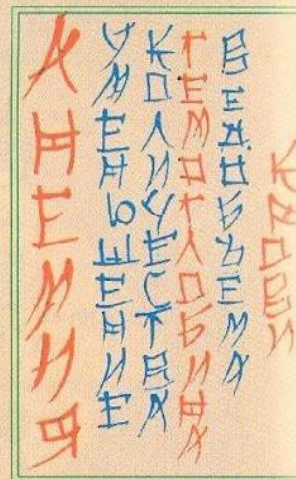 АНЕМИЯ
УМЕНЬШЕНИЕ
КОЛИЧЕСТВА
ГЕМОГЛОБИНА
В ЕД ОБЪЕМА
КРОВИ